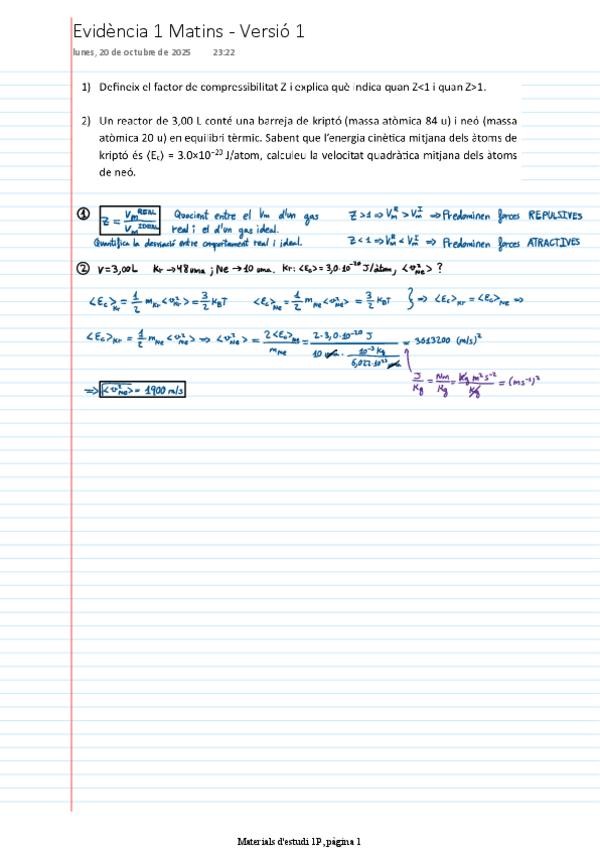 Evidència 1 Matins - Versió 1
lunes, 20 de octubre de 2025 23:22
1) Defineix el factor de compressibilitat Z i explica què indica quan Z<1 i quan Z>1.
2) Un reactor de 3,00 L conté una barreja de kriptó (massa atòmica 84 u) i neó (massa
atòmica 20 u) en equilibri tèrmic. Sabent que l'energia cinètica mitjana dels àtoms de
kriptó és ⟨E꜀⟩ = 3.0×10⁻²⁰ J/atom, calculeu la velocitat quadràtica mitjana dels àtoms
de neó.
① Z = Vm^REAL / Vm^IDEAL Quocient entre el Vm d'un gas Z>1 => Vm^R > Vm^I => Predominen forces REPULSIVES
real i el d'un gas ideal.
Quantifica la desviació entre comportament real i ideal. Z<1 => Vm^R < Vm^I => Predominen forces ATRACTIVES
② V=3,00L Kr → 48 uma ; Ne → 10 uma. Kr: <Ec> = 3,0·10⁻²⁰ J/àtom, <v²Ne> ?
<Ec>Kr = 1/2 mKr <v²Kr> = 3/2 kBT <Ec>Ne = 1/2 mNe <v²Ne> = 3/2 kBT } => <Ec>Kr = <Ec>Ne =>
<Ec>Kr = 1/2 mNe <v²Ne> => <v²Ne> = 2<Ec>Kr / mNe = 2·3,0·10⁻²⁰ J / (10 uma · 10⁻³ Kg / 6,022·10²³ uma) = 3613200 (m/s)²
J/Kg = Nm/Kg = Kg m² s⁻² / Kg = (ms⁻¹)²
=> √<v²Ne> = 1900 m/s
Materials d'estudi 1P, pàgina 1